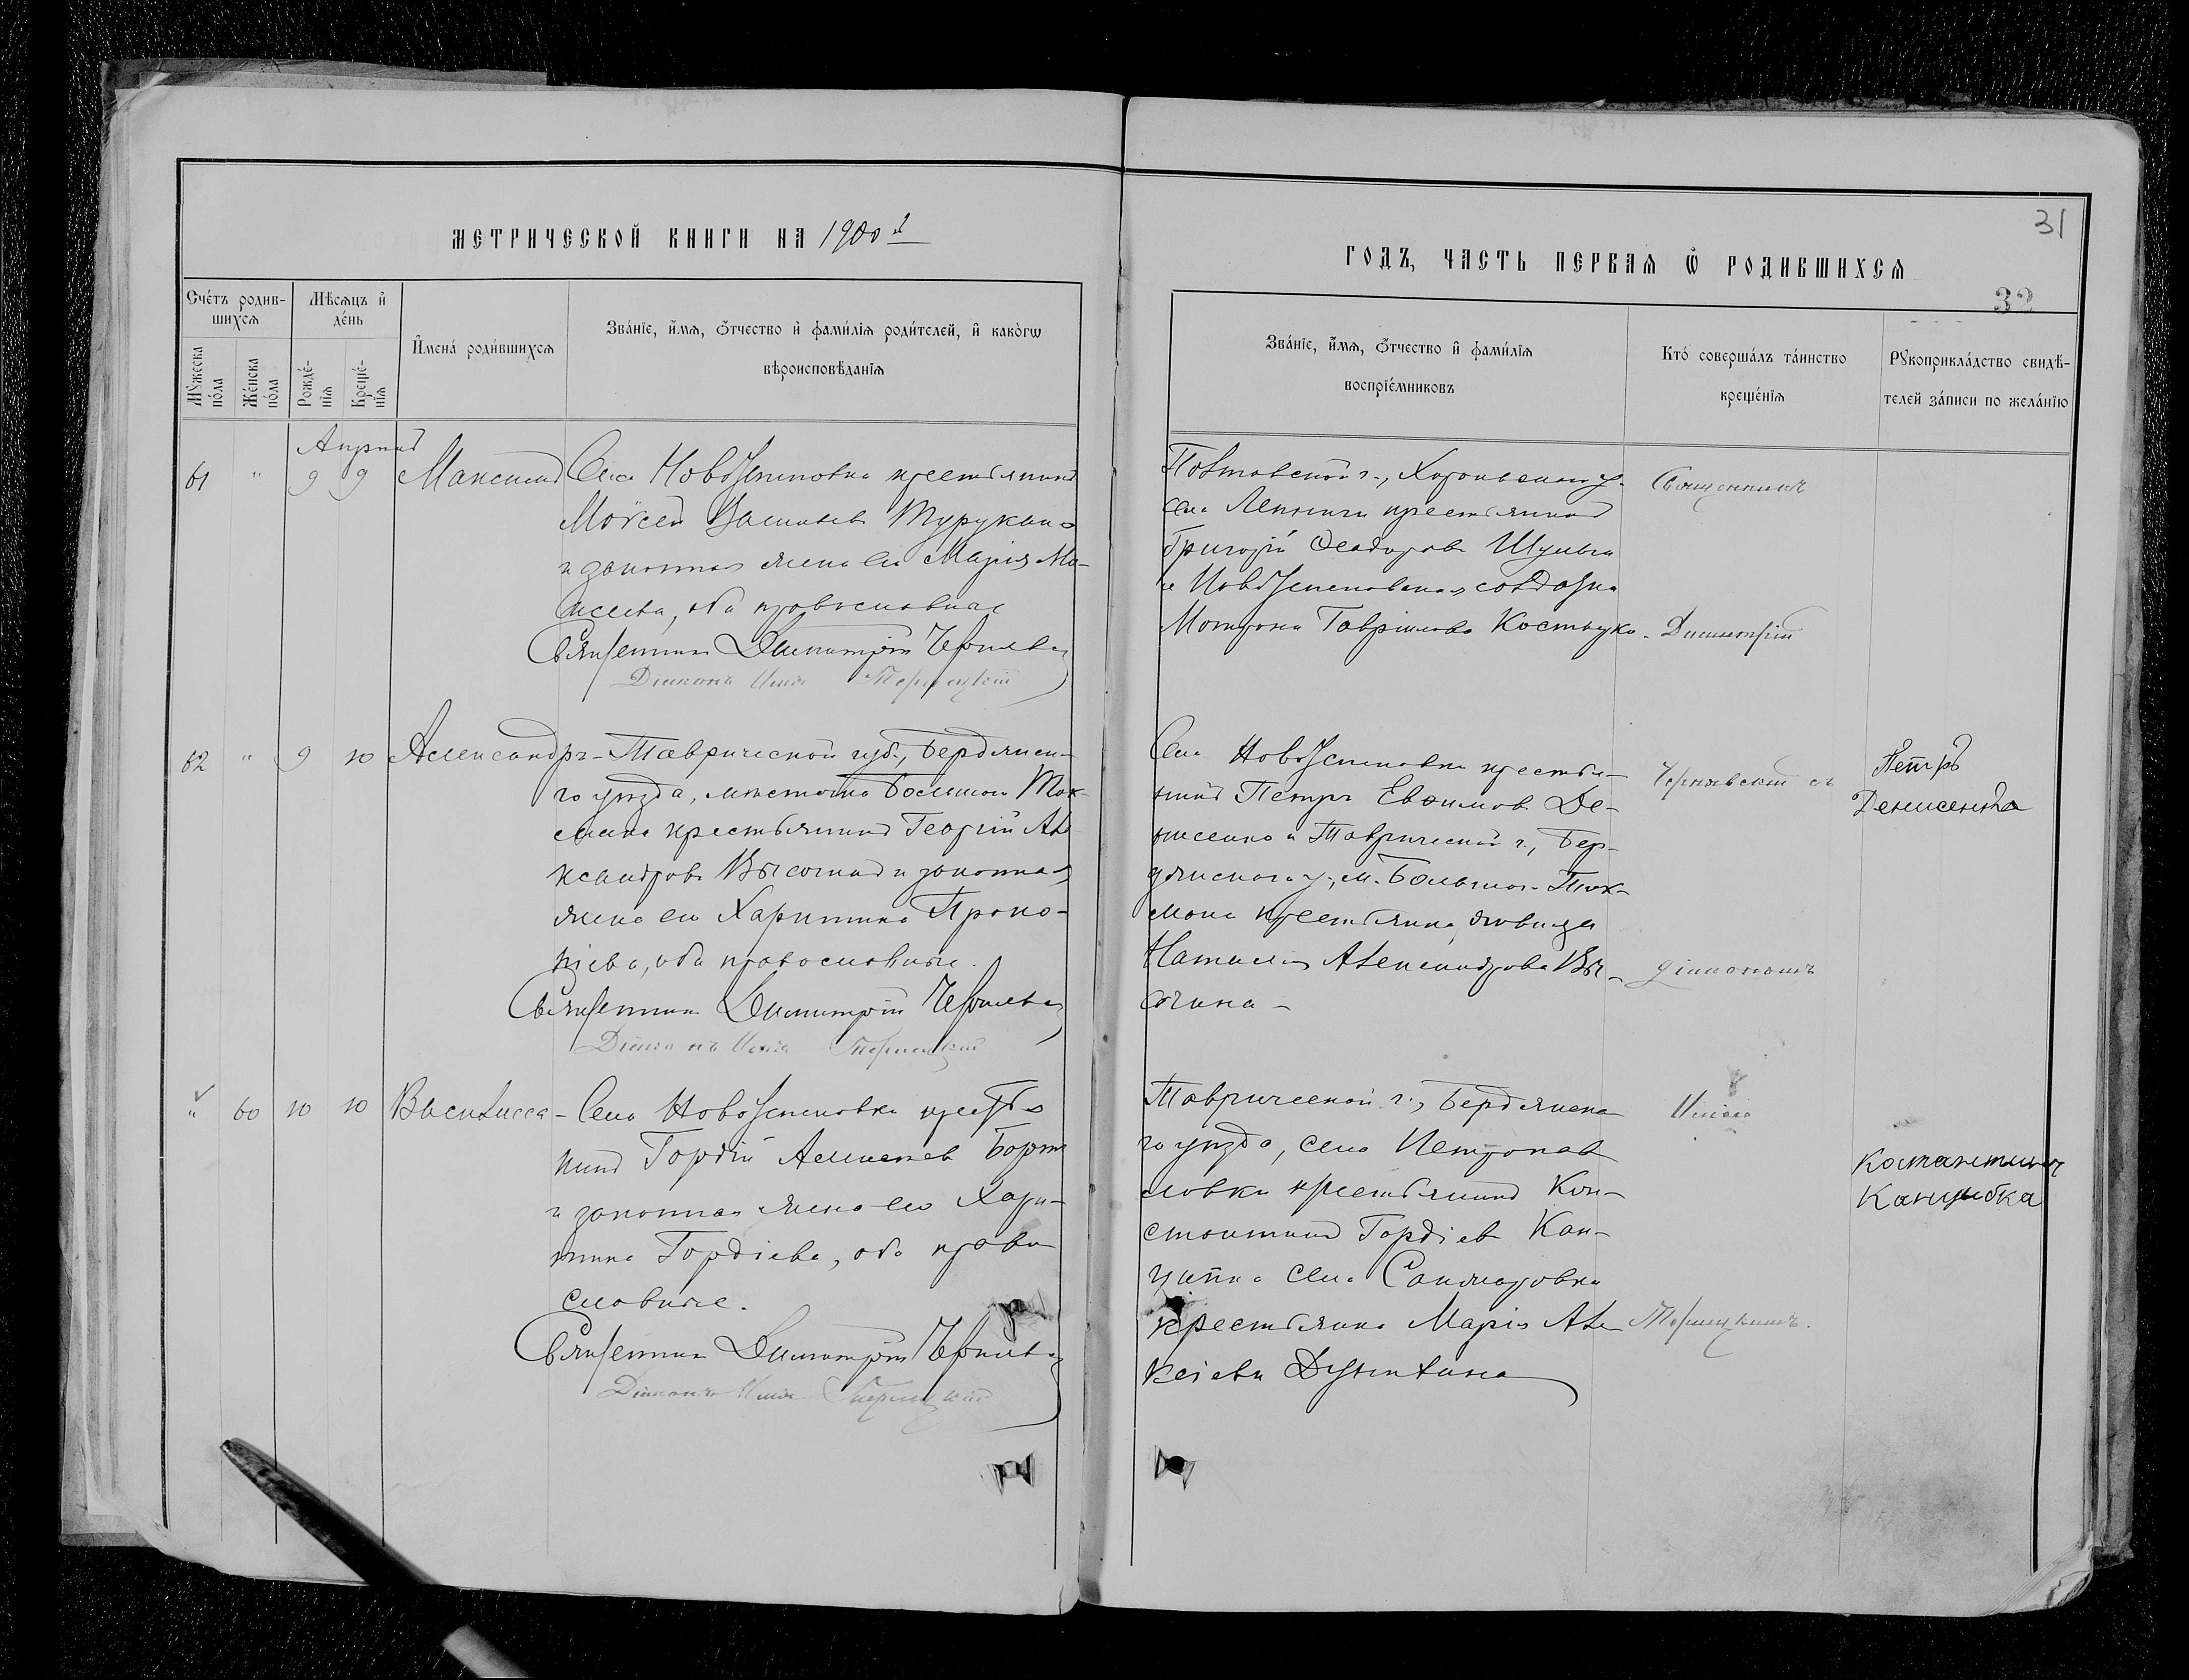 МЕТРИЧЕСКОЙ КНИГИ НА 1900й
Счётъ родив-
шихся
Мѣсяцъ и
день
Мужеска
пола
Женска
пола
Рожде-
нія
Креще-
нія
Имена родившихся
Званіе, имя, отчество и фамилія родителей, и какогω
вѣроисповѣданія
Апрѣль
61 " 9 9 Максимъ Села Новоуспеновки крестьянинъ
Моѵсей Васильев
и законная жена его Марія Мо-
исеева, оба православные
Священникъ Димитрій Чернявскій
Діаконъ Илія Терлецкій
62 " 9 10 Александръ - Таврической губ., Бердянска-
го уѣзда, мѣстечка Большой Ток-
мака крестьянинъ Георгій Але-
ксандровъ Височинъ и законная
жена его Харитина Проко-
піева, оба православные.
Священникъ Димитрій Чернявскій
Діаконъ Илія Терлецкій
" 60 10 10 Василисса - Села Новоуспеновки крестья
нинъ Гордій Алексѣевъ
и законная жена его Хари-
тина Гордіева, оба право
славные.
Священникъ Димитрій Чернявскій
Діаконъ Илія Терлецкій
31
ГОДЪ, ЧАСТЬ ПЕРВАЯ Ѿ РОДИВШИХСЯ
32
Званіе, имя, отчество и фамилія
воспріемниковъ
Кто совершалъ таинство
крещенія
Рукоприкладство свидѣ-
телей записи по желанію
Полтавской г., Хорольскаго у.
села крестьянинъ
Григорій Ѳеодоровъ Шульга
и Новоуспеновская солдатка
Мотрона Гавріилова Костюко-
Священникъ
Димитрій
Села Новоуспеновки крестья-
нинъ Петръ Евѳимовъ Де-
нисенко и Таврической г., Бер-
дянскаго у., м. Большой Ток-
мака крестьянка, дѣвица
Наталія Александрова Ви-
сочина -
Чернявскій съ
діакономъ
Петръ
Денисенко
Таврической г., Бердянска
го уѣзда, села Петропав
ловки крестьянинъ Кон-
стантинъ Гордіевъ Кан-
цыпка села
крестьянка Марія Але
ксіева
Иліею
Терлецкимъ.
Костантинъ
Канцыбка